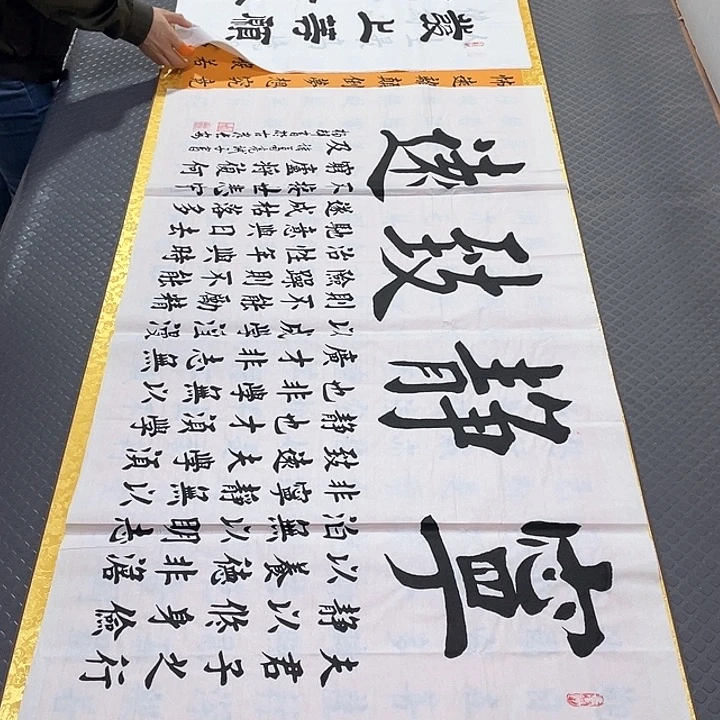 寧靜致遠
夫君子之行
靜以修身儉
以養德非澹
泊無以明志
非寧靜無以
致遠夫學須
靜也才須學
也非學無以
廣才非志無
以成學淫慢
則不能勵精
險躁則不能
治性年與時
馳意與日去
遂成枯落多
不接世悲守
窮廬將復何
及